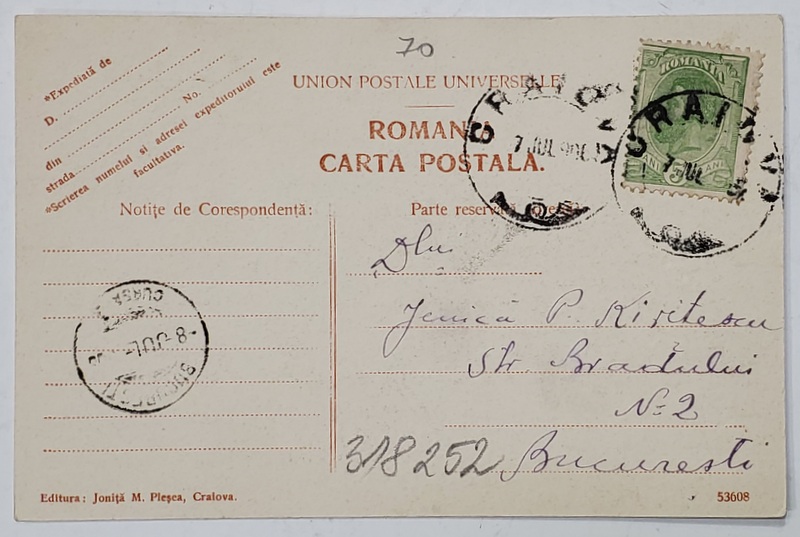 70
*Expediată de
D.
No.
din
strada
*Scrierea numelui si adresei expeditorului este
facultativa.
UNION POSTALE UNIVERSELLE
ROMANIA
CARTA POSTALĂ.
CRAIOVA
7 JUL
ROMANIA
BANI 5 BANI
CRAIOVA
7 JUL
Notițe de Corespondență:
Parte reservată adresei
Dlui
Jenică P. Kirițescu
Str. Bradului
No 2
București
318252
BUCURESTI
-8 JUL
CURSA
Editura: Joniță M. Pleșea, Craiova.
53608